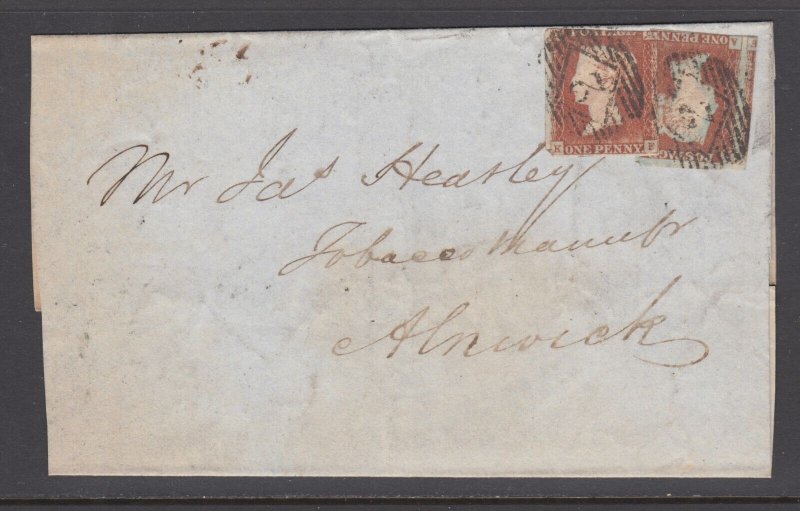 POSTAGE
ONE PENNY
K F
ONE PENNY
Mr Jas Heatley
Tobacco Manufr
Alnwick